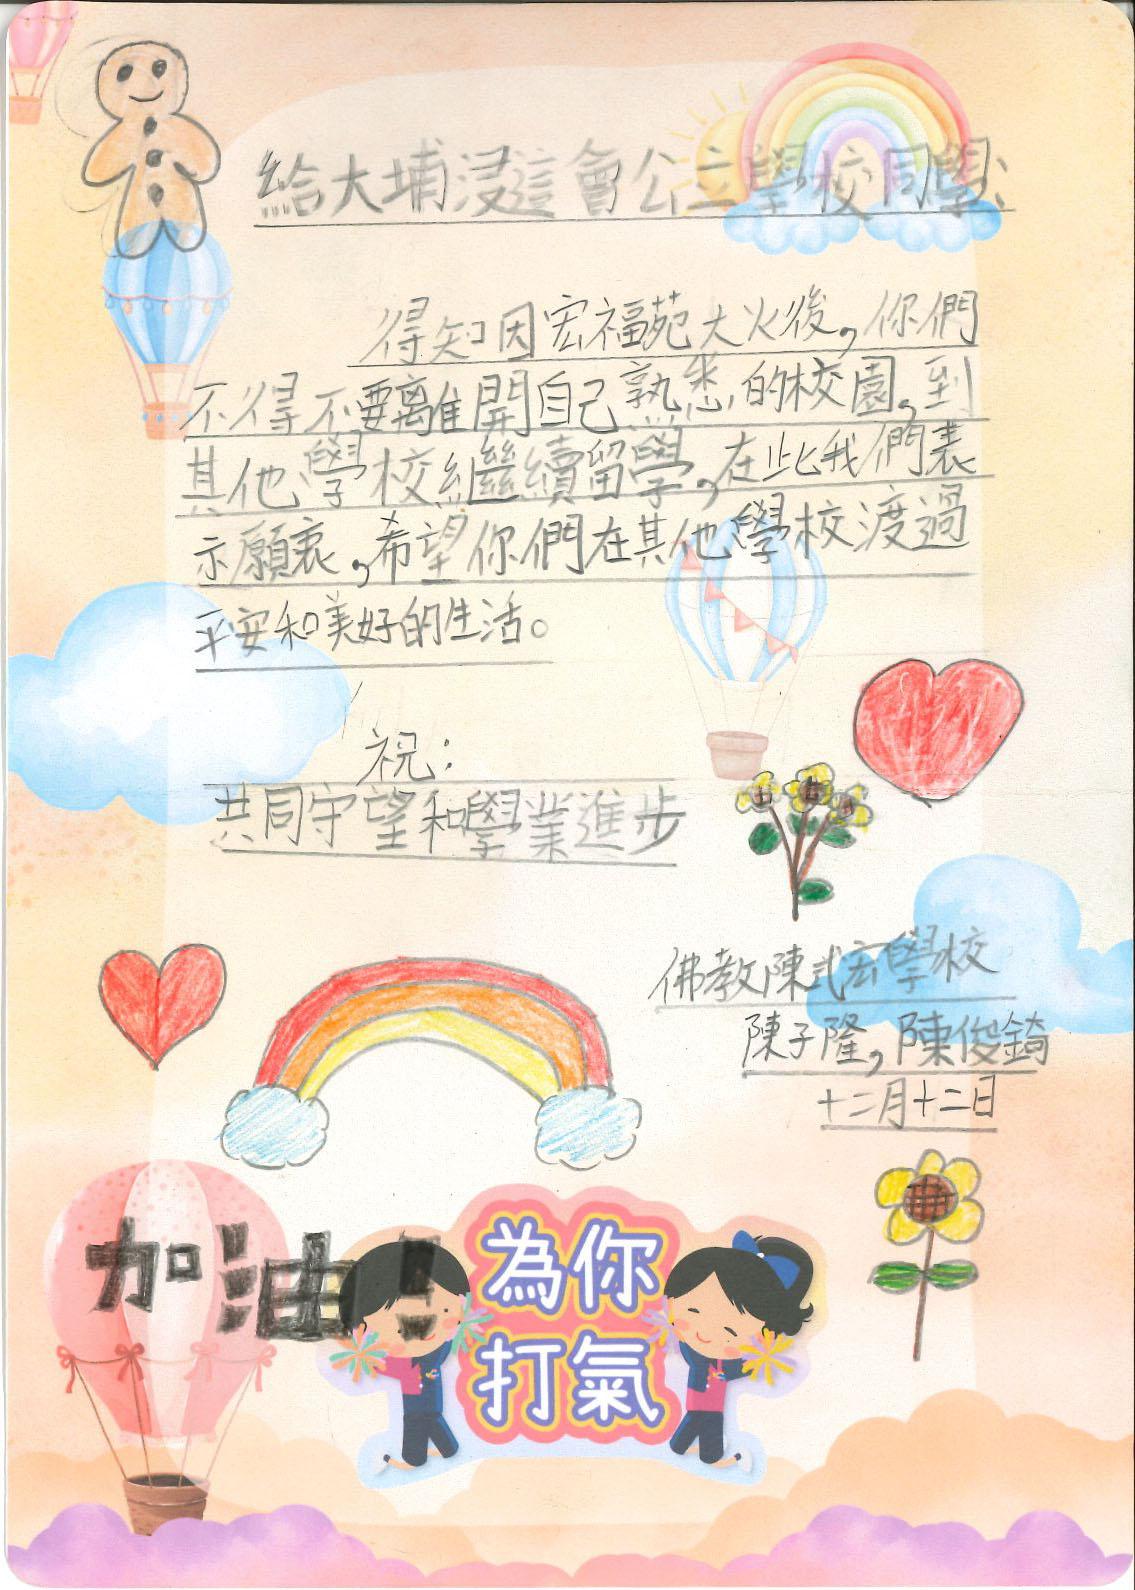 給大埔浸這會公立學校同學:
得知因宏福苑大火後,你們
不得不要離開自己熟悉的校園,到
其他學校繼續留學,在此我們表
示願衷,希望你們在其他學校渡過
平安和美好的生活。
祝:
共同守望和學業進步
佛教陳式宏學校
陳子隆,陳俊錡
十二月十二日
加油!
為你
打氣